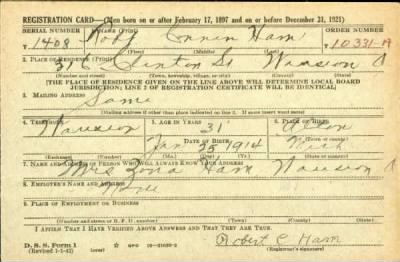 REGISTRATION CARD—(Men born on or after February 17, 1897 and on or before December 31, 1921)
SERIAL NUMBER 1. NAME (Print) ORDER NUMBER
T 1408 Ham 10331-A
(First) (Middle) (Last)
2. PLACE OF RESIDENCE (Print)
316 Clinton St Wauseon O
(Number and street) (Town, township, village, or city) (County) (State)
[THE PLACE OF RESIDENCE GIVEN ON THE LINE ABOVE WILL DETERMINE LOCAL BOARD
JURISDICTION; LINE 2 OF REGISTRATION CERTIFICATE WILL BE IDENTICAL]
3. MAILING ADDRESS
Same
(Mailing address if other than place indicated on line 2. If same insert word same)
4. TELEPHONE 5. AGE IN YEARS 6. PLACE OF BIRTH
Wauseon 31
DATE OF BIRTH (Town or county)
Jan 25 1914 Mich
(Exchange) (Number) (Mo.) (Day) (Yr.) (State or country)
7. NAME AND ADDRESS OF PERSON WHO WILL ALWAYS KNOW YOUR ADDRESS
Mrs Zona Ham Wauseon O
8. EMPLOYER'S NAME AND ADDRESS
9. PLACE OF EMPLOYMENT OR BUSINESS
(Number and street or R. F. D. number) (Town) (County) (State)
I AFFIRM THAT I HAVE VERIFIED ABOVE ANSWERS AND THAT THEY ARE TRUE.
Robert C Ham
D. S. S. Form 1
(Revised 1-1-42) GPO (Registrant's signature)